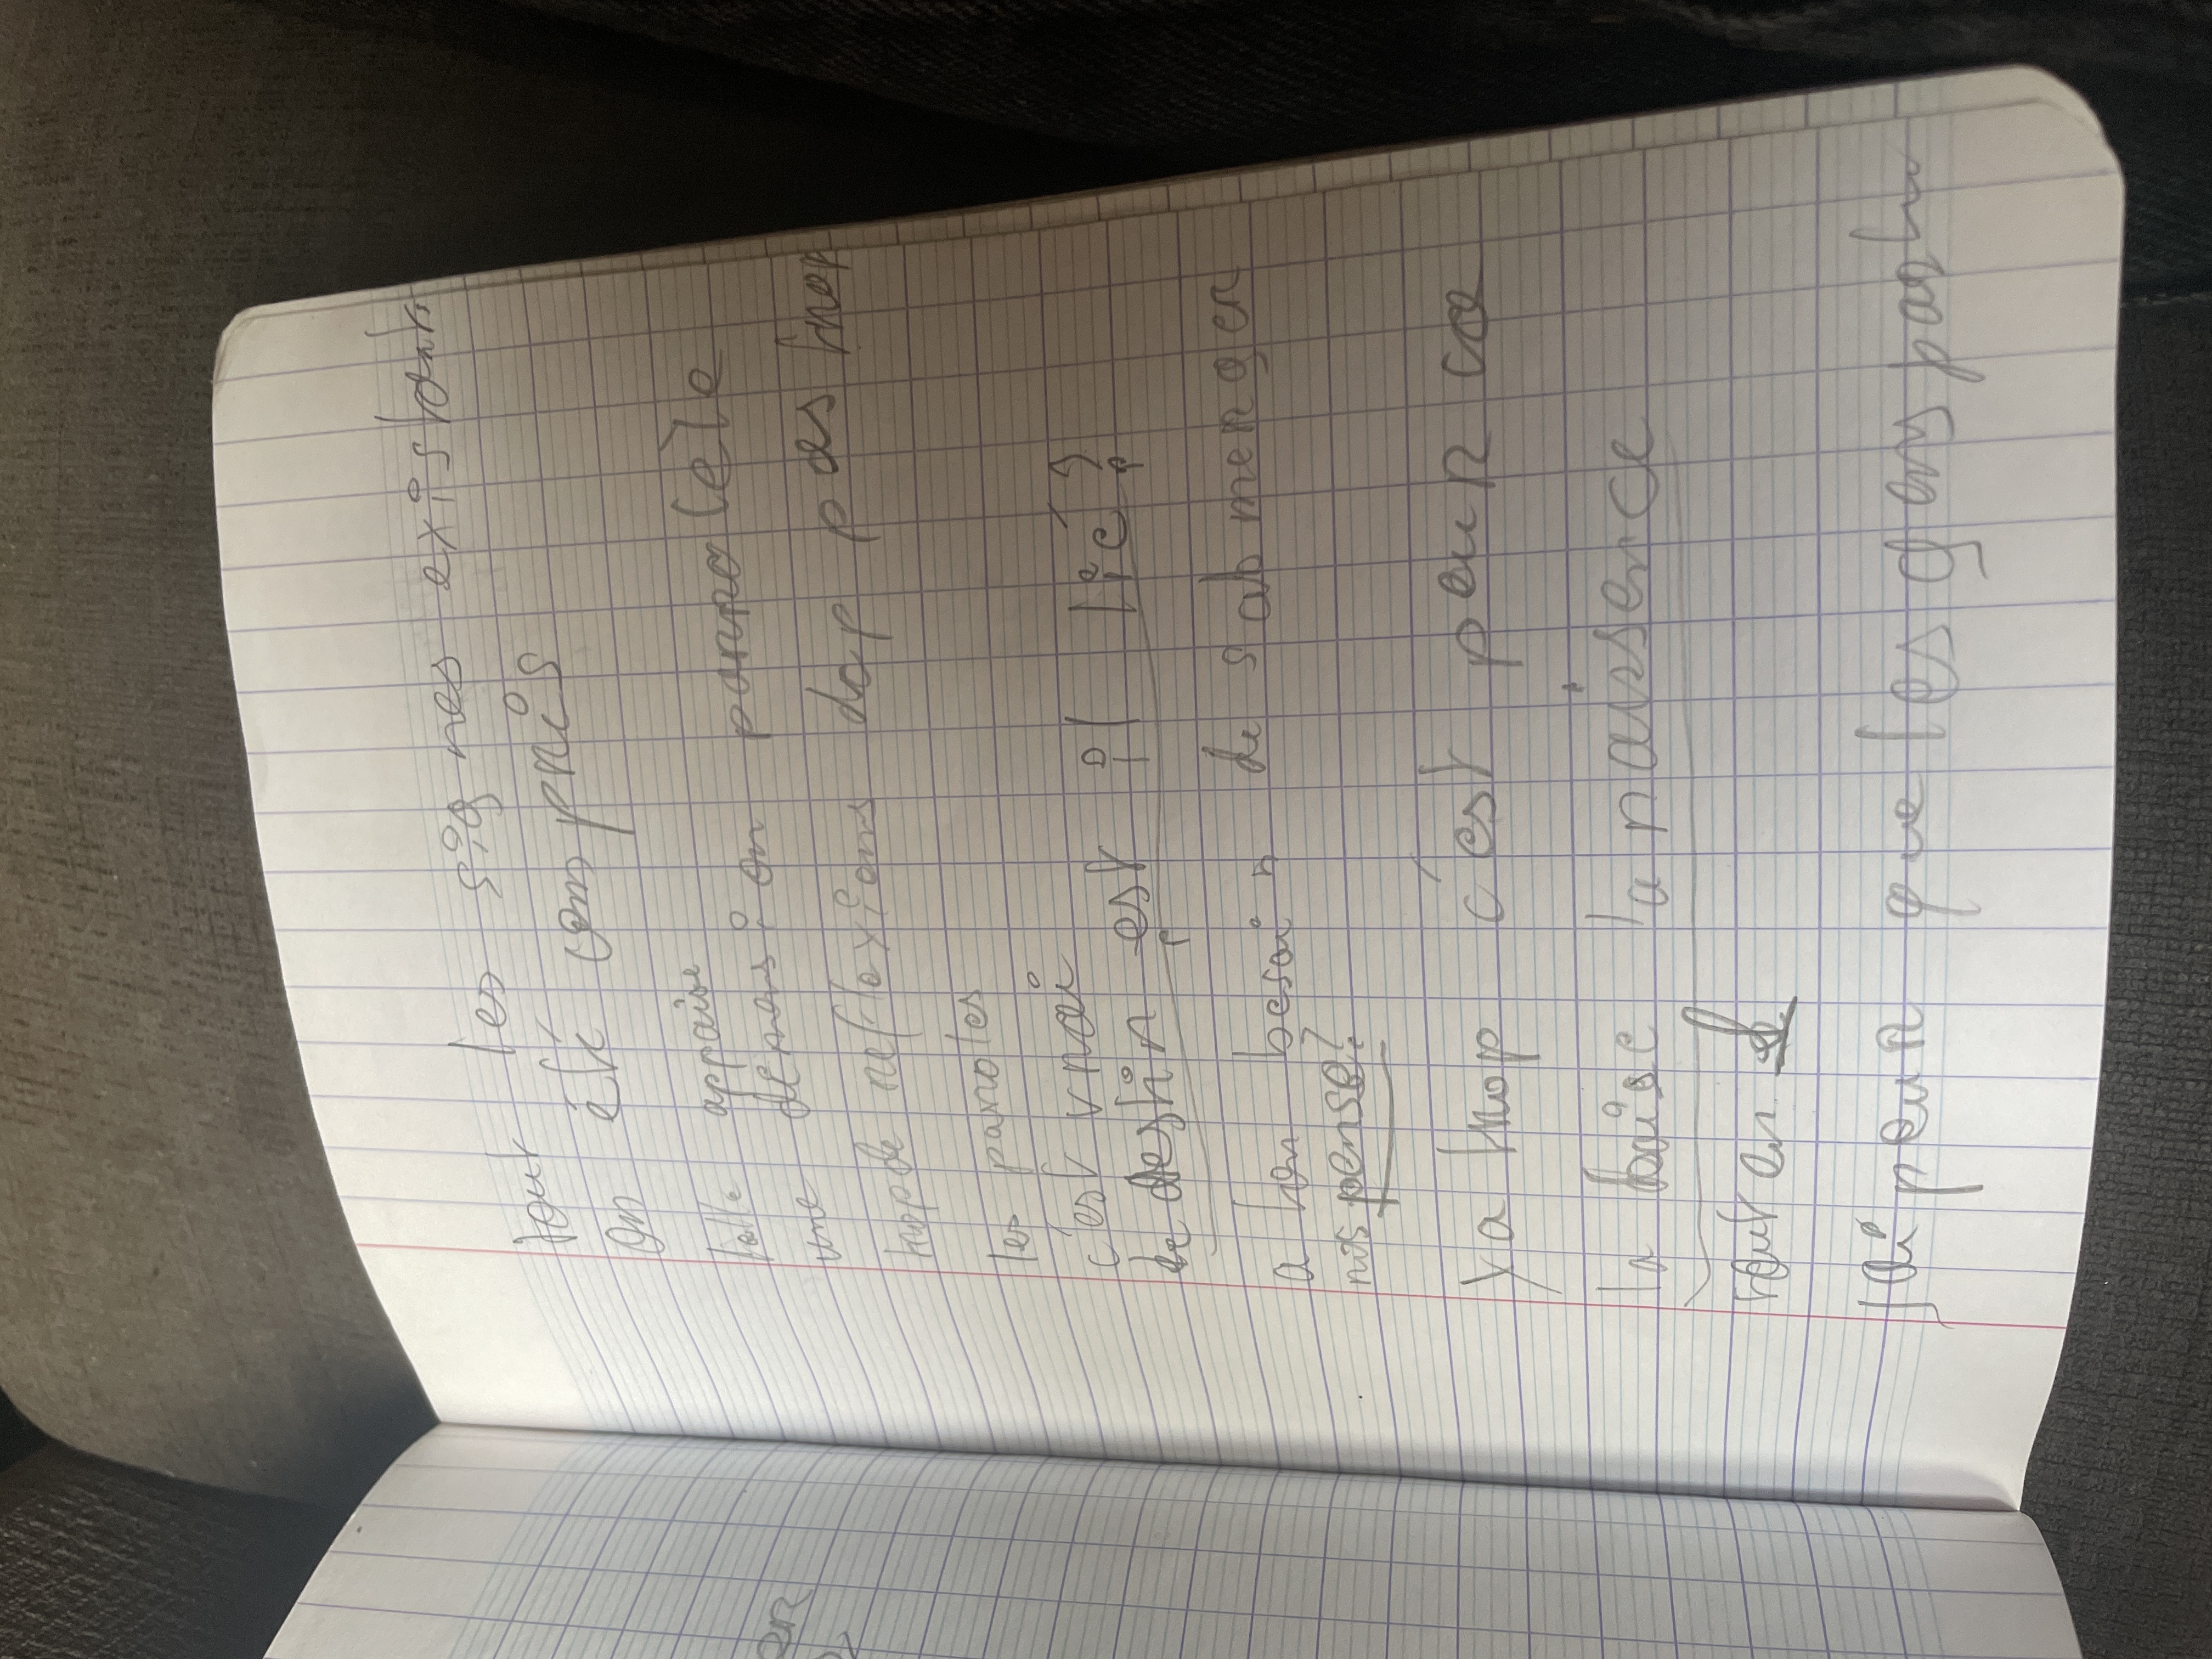 tout les signes existants
on été compris
appaise
une dépression paranocele
trop de reflexions dap pas trop
les paroles
c'est vrai
le destin est il lié ?
a ton besoin de sabmerger
nos pense ?
ya trop c'est pour ca
la baise la naissence
tout en
jai peur que les gens partu